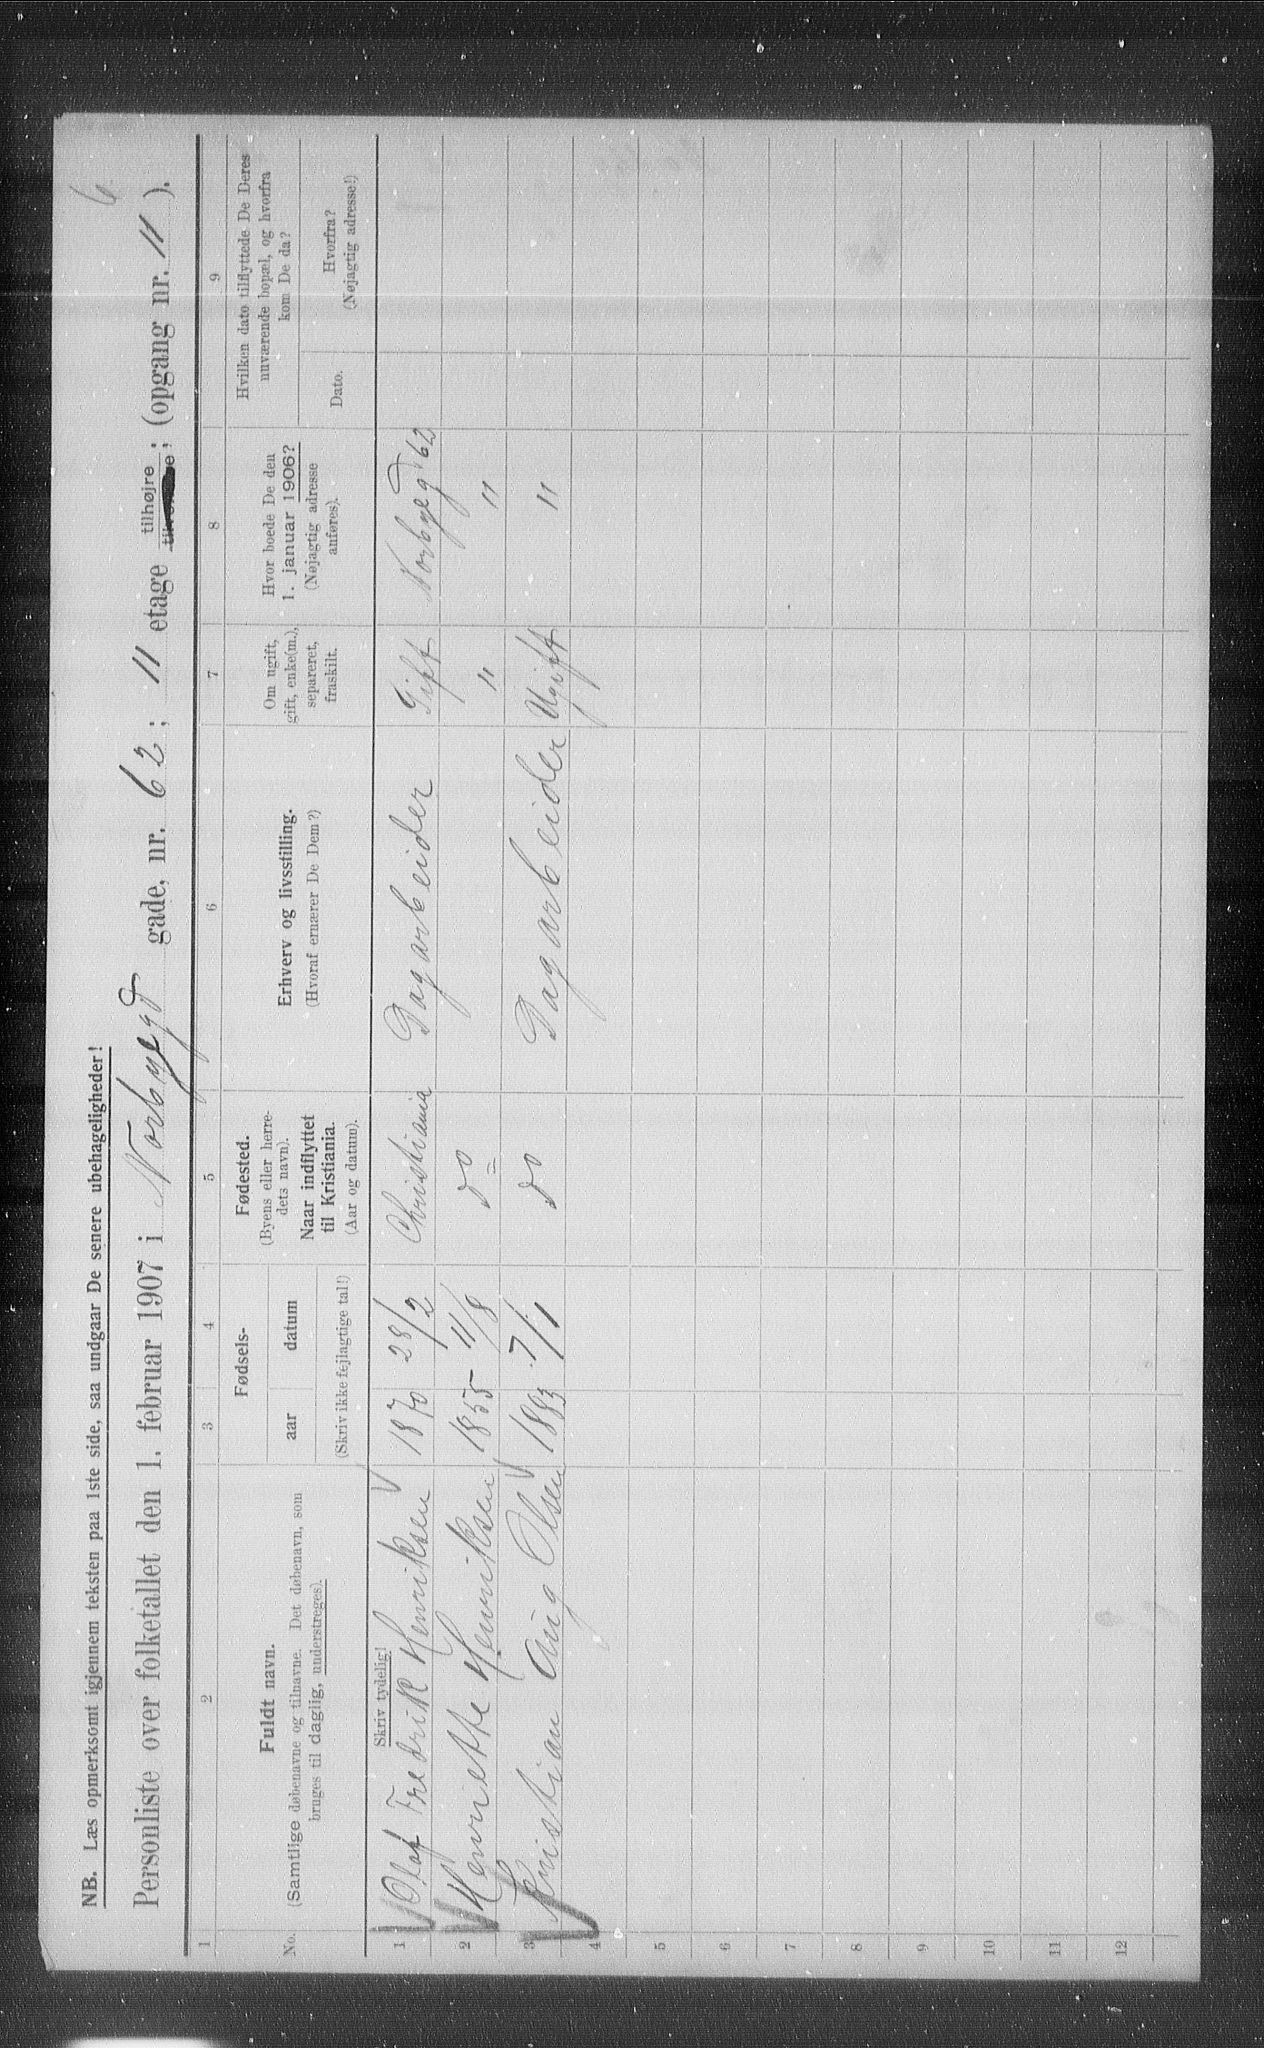 6
NB. Læs opmerksomt igjennem teksten paa 1ste side, saa undgaar De senere ubehageligheder!
Personliste over folketallet den 1. februar 1907 i Norbygd gade, nr. 62; 11 etage tilhøjre; (opgang nr. 11).
1 2 3 4 5 6 7 8 9
No.
Fuldt navn.
(Samtlige døbenavne og tilnavne. Det døbenavn, som
bruges til daglig, understreges).
Skriv tydelig!
Fødsels-
aar datum
(Skriv ikke fejlagtige tal!)
Fødested.
(Byens eller herre-
dets navn).
Naar indflyttet
til Kristiania.
(Aar og datum).
Erhverv og livsstilling.
(Hvoraf ernærer De Dem?)
Om ugift,
gift, enke(m.),
separeret,
fraskilt.
Hvor boede De den
1. januar 1906?
(Nøjagtig adresse
anføres).
Hvilken dato tilflyttede De Deres
nuværende bopæl, og hvorfra
kom De da?
Dato.
Hvorfra?
(Nøjagtig adresse!)
1 Olaf Fredrik Henriksen 1870 28/2 Christiania Dagarbeider Gift Norbyegd 62
2 Henriette Henriksen 1855 11/8 do " "
3 Kristian Aug Olsen 1883 7/1 do Dagarbeider Ugift "
4
5
6
7
8
9
10
11
12